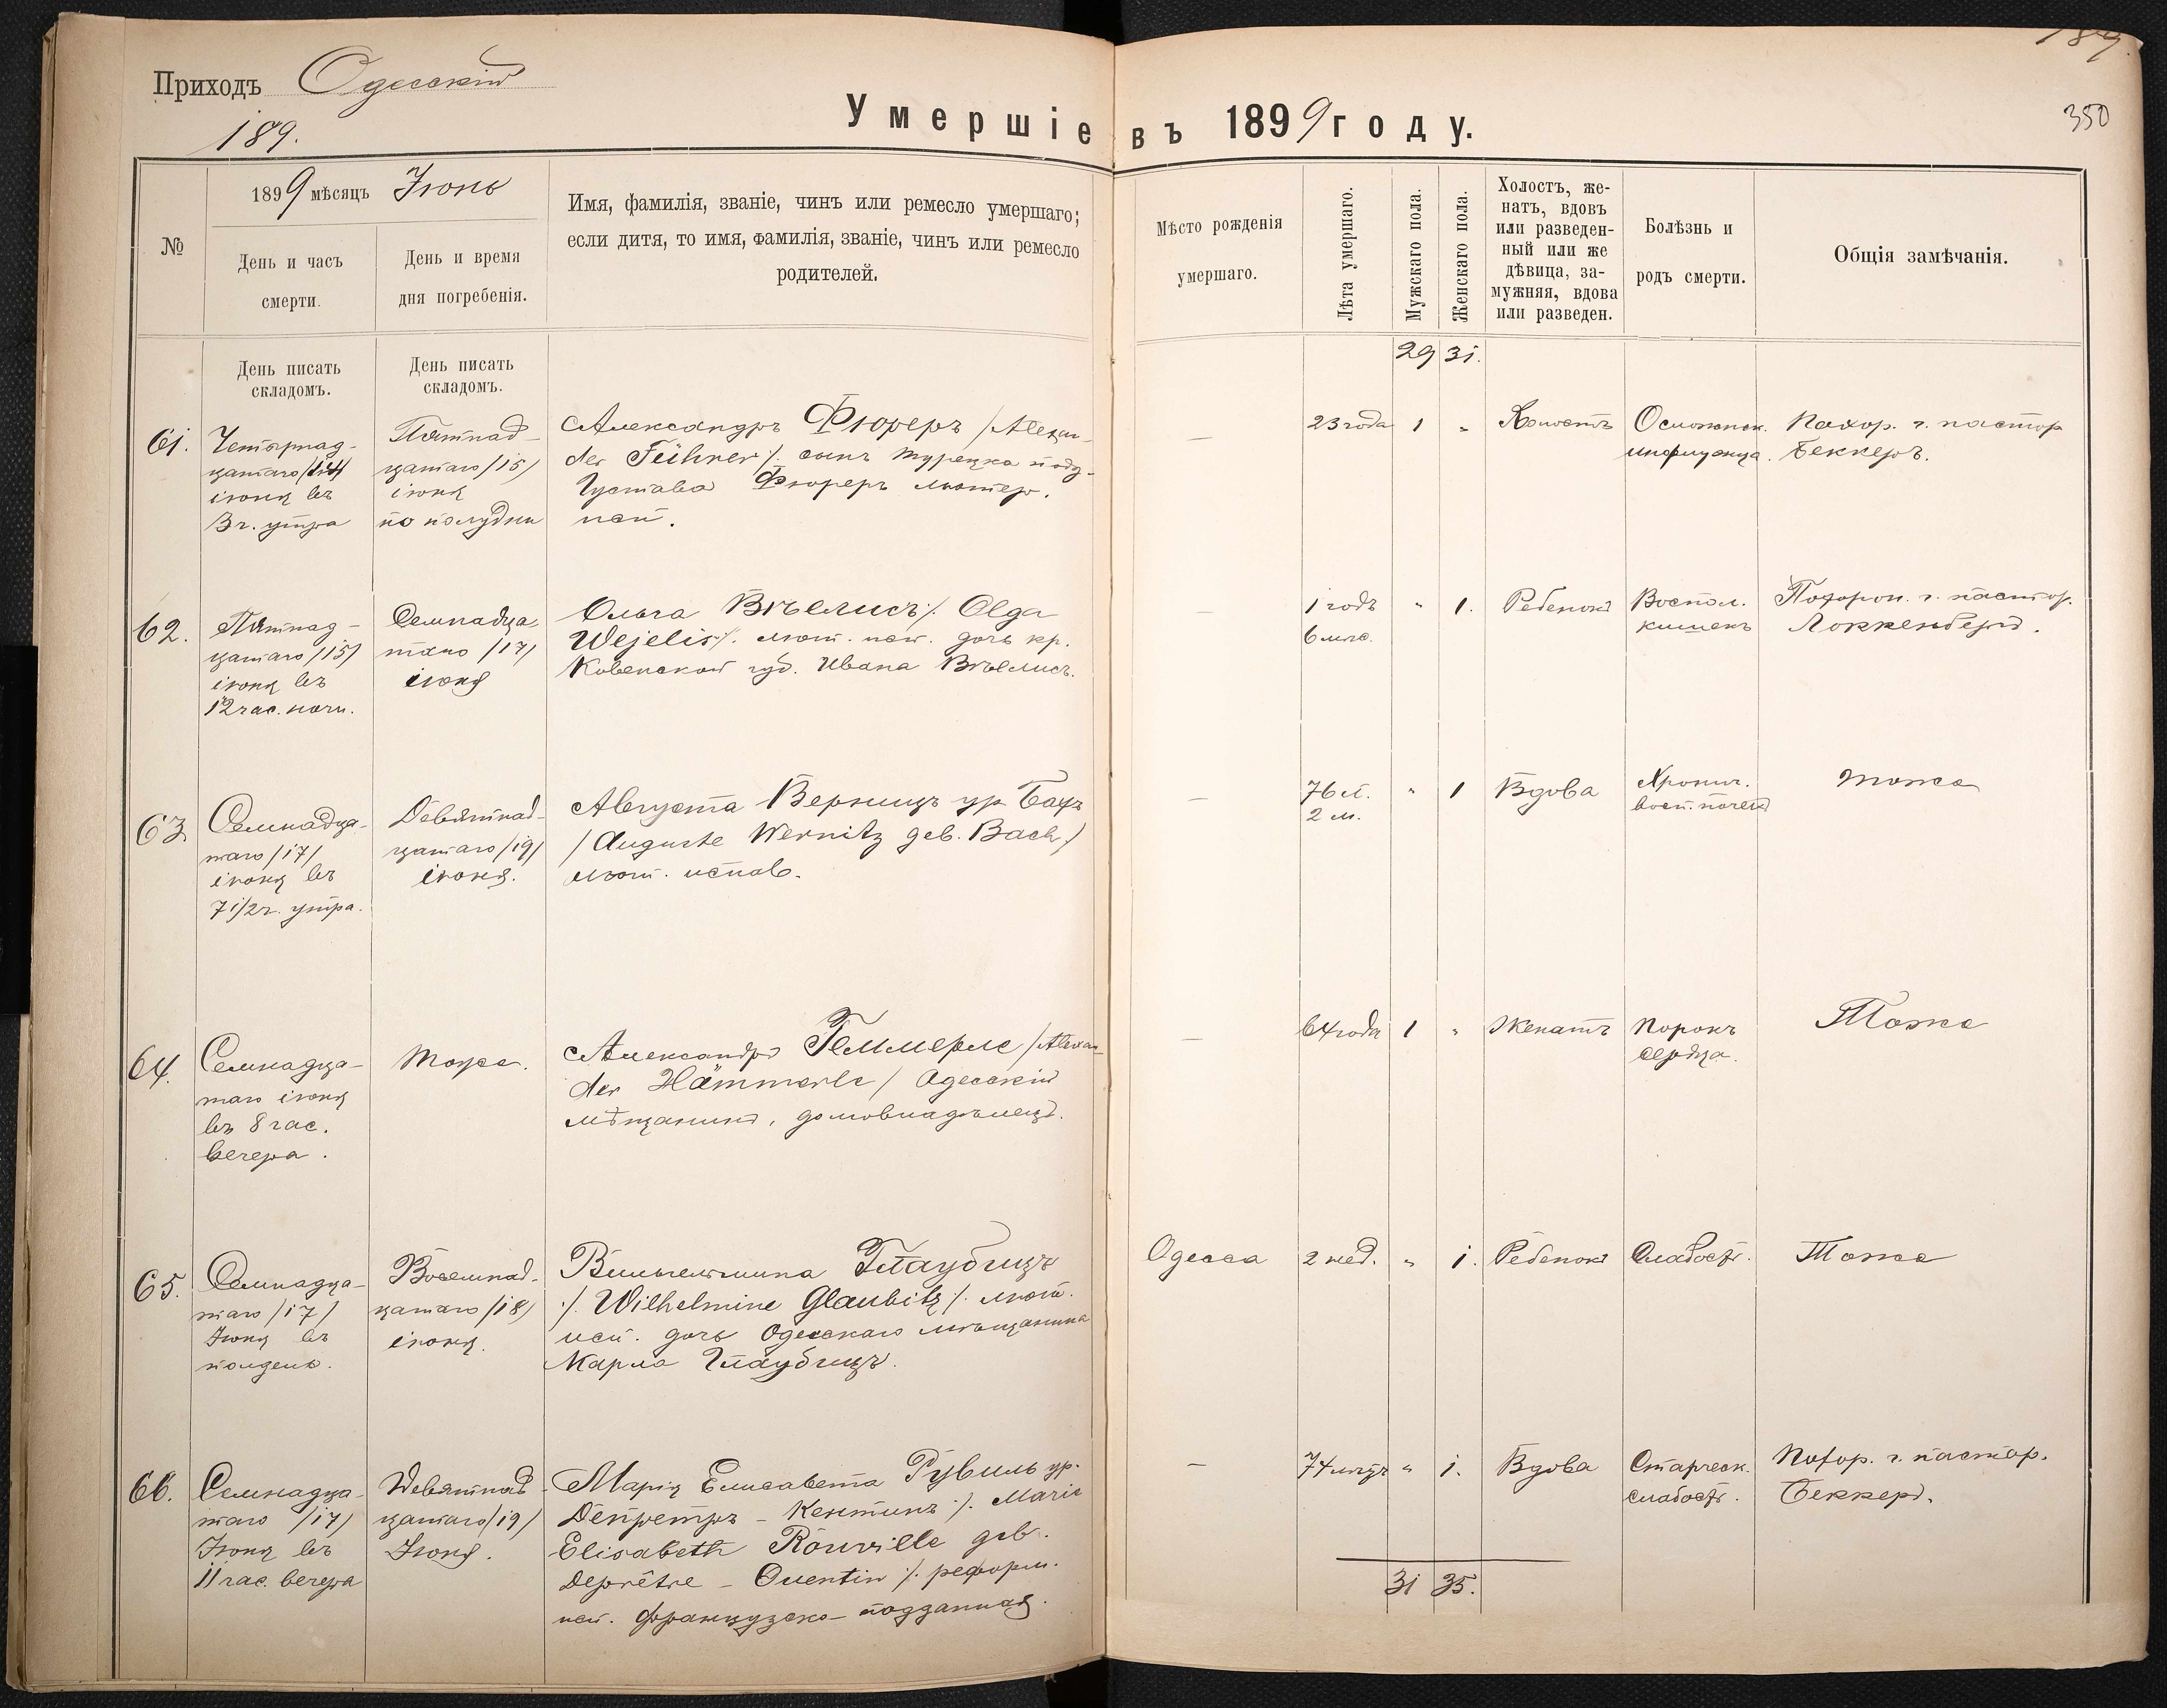 189.
350
Приходъ Одесскій
189.
Умершіе въ 1899 году.
№
1899 мѣсяцъ Іюнь
День и часъ
смерти.
День и время
дня погребенія.
Имя, фамилія, званіе, чинъ или ремесло умершаго;
если дитя, то имя, фамилія, званіе, чинъ или ремесло
родителей.
Мѣсто рожденія
умершаго.
Лѣта умершаго.
Мужскаго пола.
Женскаго пола.
Холостъ, же-
натъ, вдовъ
или разведен-
ный или же
дѣвица, за-
мужняя, вдова
или разведен.
Болѣзнь и
родъ смерти.
Общія замѣчанія.
День писать
складомъ.
День писать
складомъ.
29 31.
61.
Четырнад-
цатаго /14/
іюня въ
3 ч. утра
Пятнад-
цатаго /15/
іюня
по полудни
Александръ Фюреръ /Alexan-
der Führer/. сынъ турецка подд-
Густава Фюреръ лютер.
исп.
—
23 года
1
"
Холостъ
Осложнен.
инфлуэнца.
Похор. г. пастор
Беккеръ.
62.
Пятнад-
цатаго /15/
іюня въ
12 час. ночи.
Семнадца
таго /17/
іюня
Ольга Вѣелисъ /. Olga
Wejelis /. лют. исп. дочь кр.
Ковенской губ. Ивана Вѣелисъ.
—
1 годъ
6 мѣс.
"
1.
Ребенокъ
Воспал.
кишекъ
Похорон. г. пастор.
Локкенбергъ.
63.
Семнадца-
таго /17/
іюня въ
7 1/2 ч. утра.
Девятнад-
цатаго /19/
іюня.
Августа Верницъ ур. Бахъ
/Auguste Wernitz geb. Bach/
лют. испов.
—
76 л.
2 м.
"
1
Вдова
Хронич.
восп. почекъ
тоже
64.
Семнадца-
таго іюня
въ 8 час.
вечера.
тоже.
Александръ Геммерле /Alexan-
der Hämmerle/ Одесскій
мѣщанинъ, домовладѣлецъ.
—
64 года
1
"
Женатъ
Порокъ
сердца.
Тоже
65.
Семнадца-
таго /17/
Іюня въ
полдень.
Восемнад-
цатаго /18/
іюня.
Вильгельмина Глаубицъ
/. Wilhelmine Glaubitz /. лют.
исп. дочь Одесскаго мѣщанина
Карла Глаубицъ.
Одесса
2 нед.
"
1.
Ребенокъ
Слабость.
Тоже
66.
Семнадца-
таго /17/
Іюня въ
11 час. вечера
Девятнад-
цатаго /19/
Іюня.
Марія Елисавета Рувиль ур.
Депретръ - Кентинъ /. Marie
Elisabeth Rouville geb.
Deprêtre - Quentin /. реформ.
исп. французско-подданная.
—
74 лѣтъ
"
1.
Вдова
Старческ.
слабость.
Похор. г. пастор.
Беккеръ.
31 35.